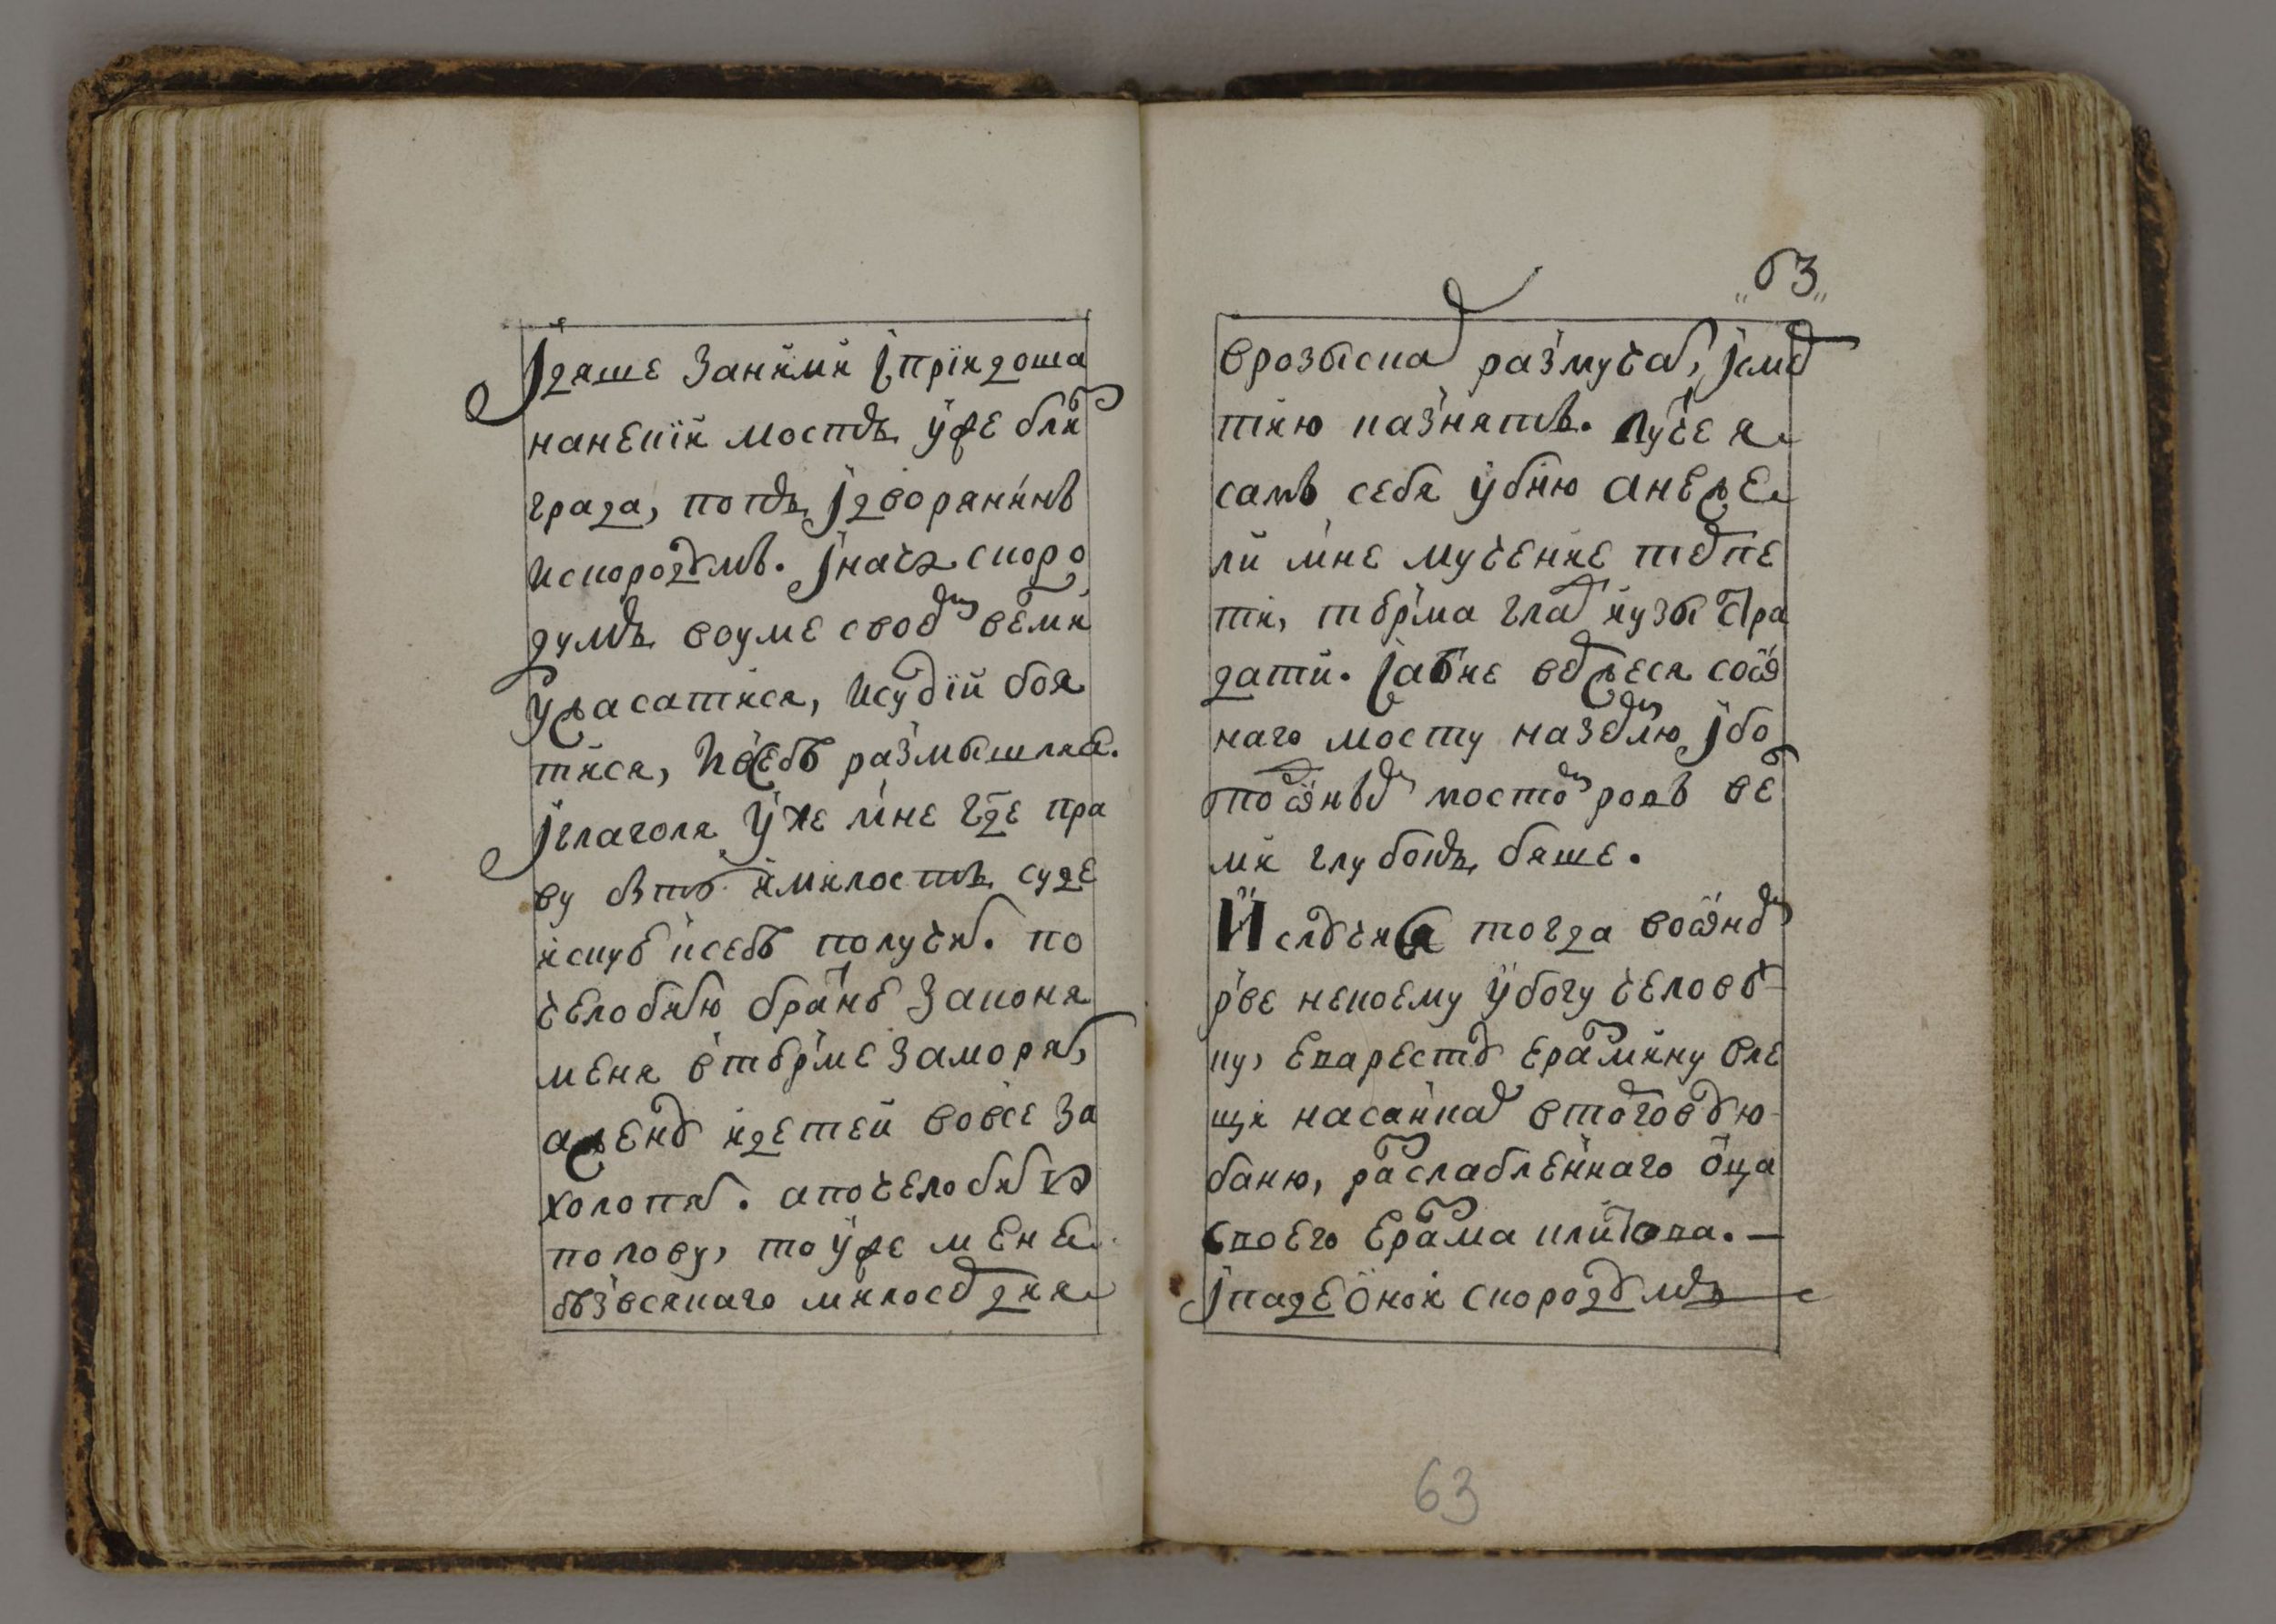 Ідяше заними іпріидоша
нанекіи мостъ уже близ
града, попъ, ідворянинъ
искородумъ. іначя скоро
думъ воуме своем вѣми
ужасатися, исудіи боя
тися, ивсебѣ размышляя.
іглаголя уже мне где пра
ву быть имилость суде
искую исебѣ получить. по
челобитью брание законя
меня втюрме заморятъ,
ажену идетей вовсе за
холопятъ. апочелобитью
попову, то уже меня
бѣзвсякаго милосердия
63
врозыскахъ размучатъ, ісмер
тию казнятъ. луче я
самъ себя убию анеже
ли мне мучение терпе
ти, тюрма гладъ иузы стра
дати. іабие вержеся сотоя
наго мосту наземлю ібо
подонымъ мостомъ ровъ ве
ми глубокъ бяше.
И случися тогда вооном
рве некоему убогу челове
ку, вхарестѣ ерамину вле
щи насанкахъ вторговую
баню, разслабленнаго отца
своего ерама илиіова.
іпаде онои скородумъ
63